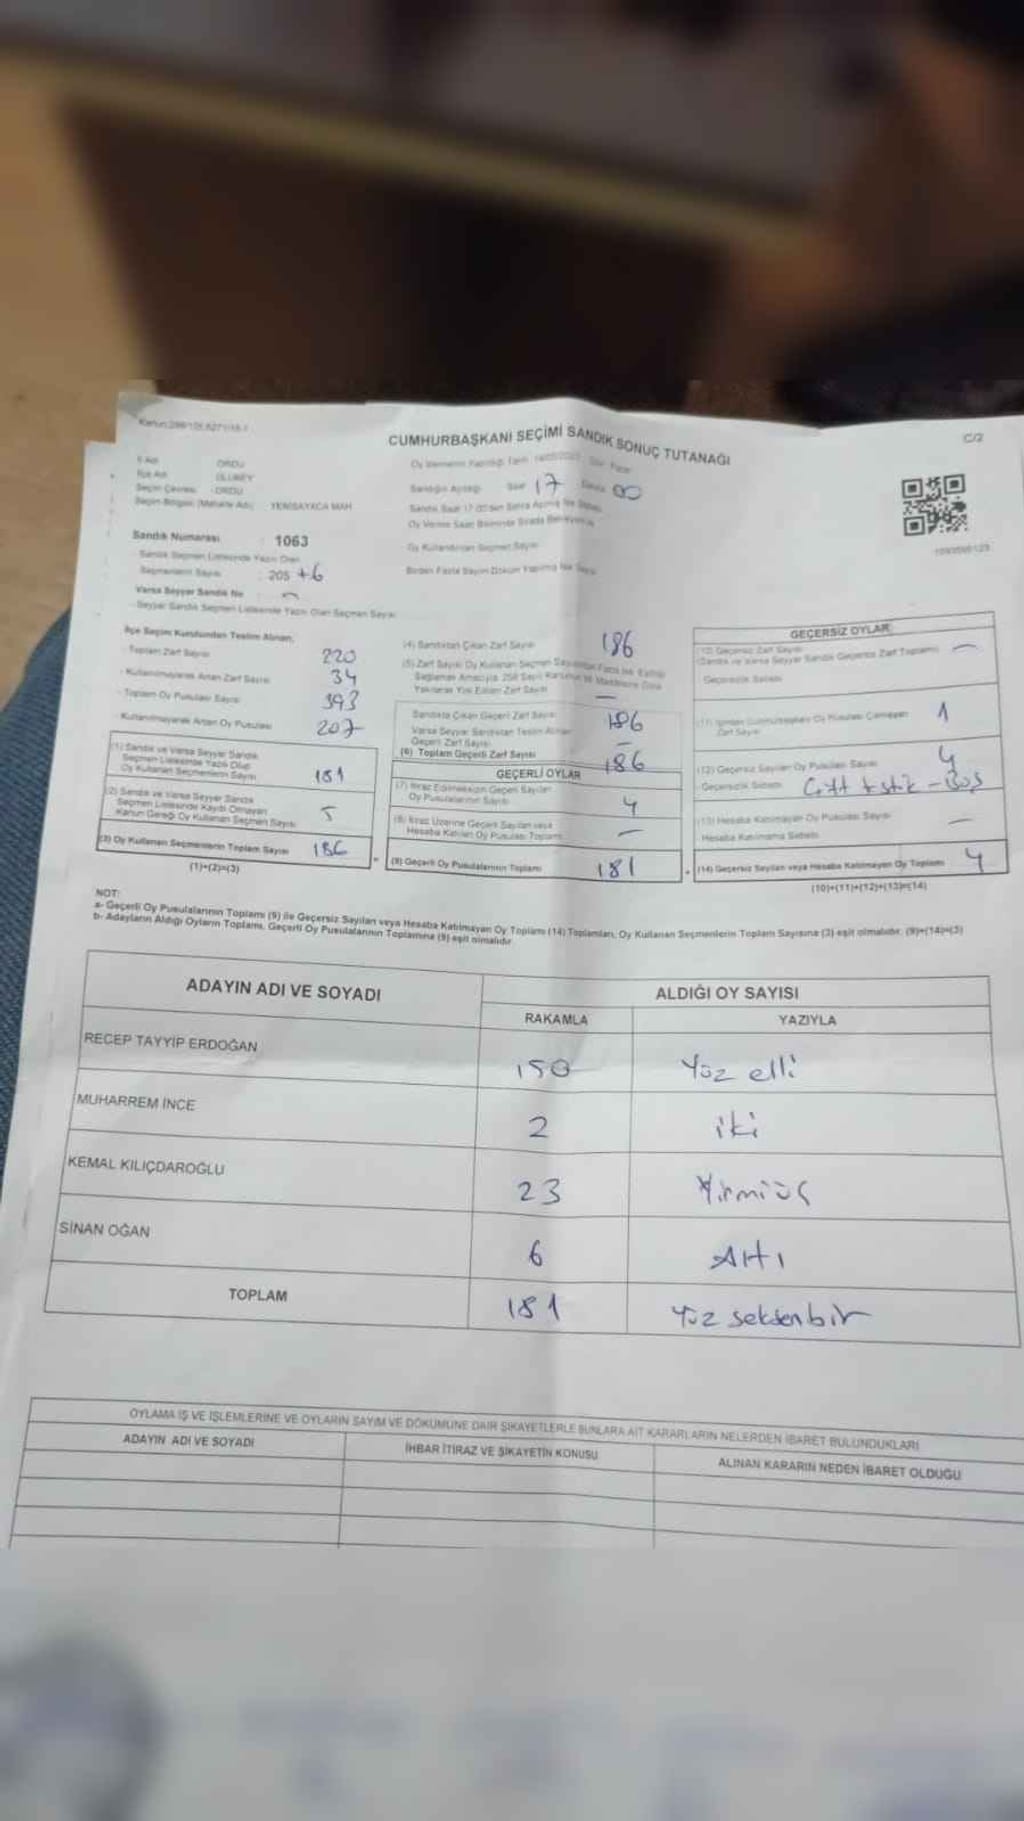 CUMHURBAŞKANI SEÇİMİ SANDIK SONUÇ TUTANAĞI
C/2
İl Adı ORDU
İlçe Adı ULUBEY
Seçim Çevresi ORDU
Seçim Bölgesi (Mahalle Adı) YENİSAYACA MAH
Sandığın Açıldığı Saat 17 00
Sandık Numarası : 1063
Sandık Seçmen Listesinde Yazılı Olan
Seçmenlerin Sayısı : 205 +6
Varsa Seyyar Sandık No -
Seyyar Sandık Seçmen Listesinde Yazılı Olan Seçmen Sayısı
İlçe Seçim Kurulundan Teslim Alınan;
- Toplam Zarf Sayısı 220
- Kullanılmayarak Artan Zarf Sayısı 34
- Toplam Oy Pusulası Sayısı 393
- Kullanılmayarak Artan Oy Pusulası 207
(1) Sandık ve Varsa Seyyar Sandık
Seçmen Listesinde Yazılı Olup
Oy Kullanan Seçmenlerin Sayısı 181
(2) Sandık ve Varsa Seyyar Sandık
Seçmen Listesinde Kaydı Olmayan
Kanun Gereği Oy Kullanan Seçmen Sayısı 5
(3) Oy Kullanan Seçmenlerin Toplam Sayısı 186
(1)+(2)=(3)
(4) Sandıktan Çıkan Zarf Sayısı 186
Yakılarak Yok Edilen Zarf Sayısı -
Sandıkta Çıkan Geçerli Zarf Sayısı 186
Varsa Seyyar Sandıktan Teslim Alınan
Geçerli Zarf Sayısı -
(6) Toplam Geçerli Zarf Sayısı 186
GEÇERLİ OYLAR
(7) İtiraz Edilmeksizin Geçerli Sayılan
Oy Pusulalarının Sayısı 4
(8) İtiraz Üzerine Geçerli Sayılan veya
Hesaba Katılan Oy Pusulası Toplamı -
(9) Geçerli Oy Pusulalarının Toplamı 181
GEÇERSİZ OYLAR
(10) Geçersiz Zarf Sayısı
(Sandık ve Varsa Seyyar Sandık Geçersiz Zarf Toplamı) -
Geçersizlik Sebebi
Zarf Sayısı 1
(12) Geçersiz Sayılan Oy Pusulası Sayısı 4
Geçersizlik Sebebi -Boş
(13) Hesaba Katılmayan Oy Pusulası Sayısı -
Hesaba Katılmama Sebebi
(14) Geçersiz Sayılan veya Hesaba Katılmayan Oy Toplamı 4
(10)+(11)+(12)+(13)=(14)
NOT:
a- Geçerli Oy Pusulalarının Toplamı (9) ile Geçersiz Sayılan veya Hesaba Katılmayan Oy Toplamı (14) Toplamları, Oy Kullanan Seçmenlerin Toplam Sayısına (3) eşit olmalıdır. (9)+(14)=(3)
b- Adayların Aldığı Oyların Toplamı, Geçerli Oy Pusulalarının Toplamına (9) eşit olmalıdır
ADAYIN ADI VE SOYADI ALDIĞI OY SAYISI
RAKAMLA YAZIYLA
RECEP TAYYİP ERDOĞAN 150 Yüz elli
MUHARREM İNCE 2 iki
KEMAL KILIÇDAROĞLU 23 Yirmiüç
SİNAN OĞAN 6 Altı
TOPLAM 181 Yüz seksenbir
OYLAMA İŞ VE İŞLEMLERİNE VE OYLARIN SAYIM VE DÖKÜMÜNE DAİR ŞİKAYETLERLE BUNLARA AİT KARARLARIN NELERDEN İBARET BULUNDUKLARI
ADAYIN ADI VE SOYADI İHBAR İTİRAZ VE ŞİKAYETİN KONUSU ALINAN KARARIN NEDEN İBARET OLDUĞU